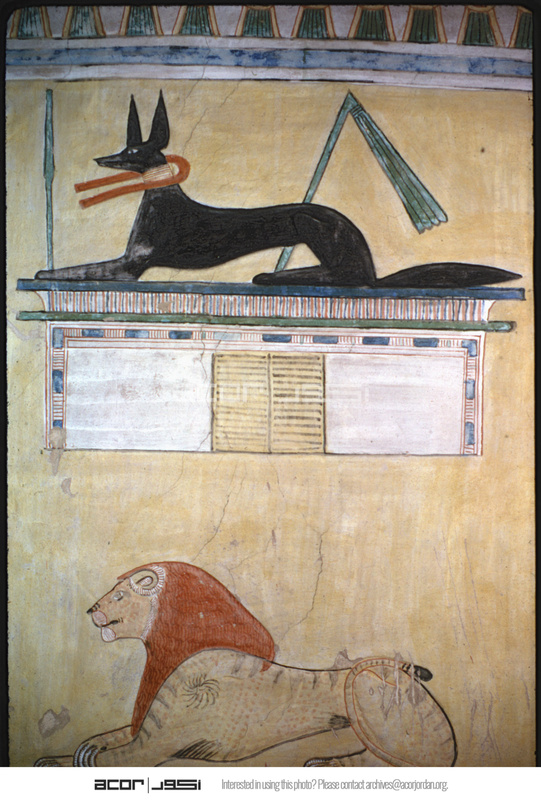 acor أكور
acor | أكور Interested in using this photo? Please contact archives@acorjordan.org.